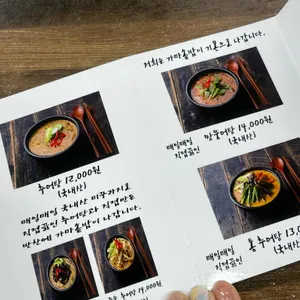 저희는 가마솥밥이 기본으로 나갑니다.
추어탕 12,000원
(국내산)
매일매일 국내산 미꾸라지로
직접끓인 추어탕과 직접만든
반찬에 가마솥밥이 나갑니다.
14,000원
매일매일
직접끓인
14,000원
(국내산)
매일매일
직접끓인
통 추어탕 13,0
(국내산